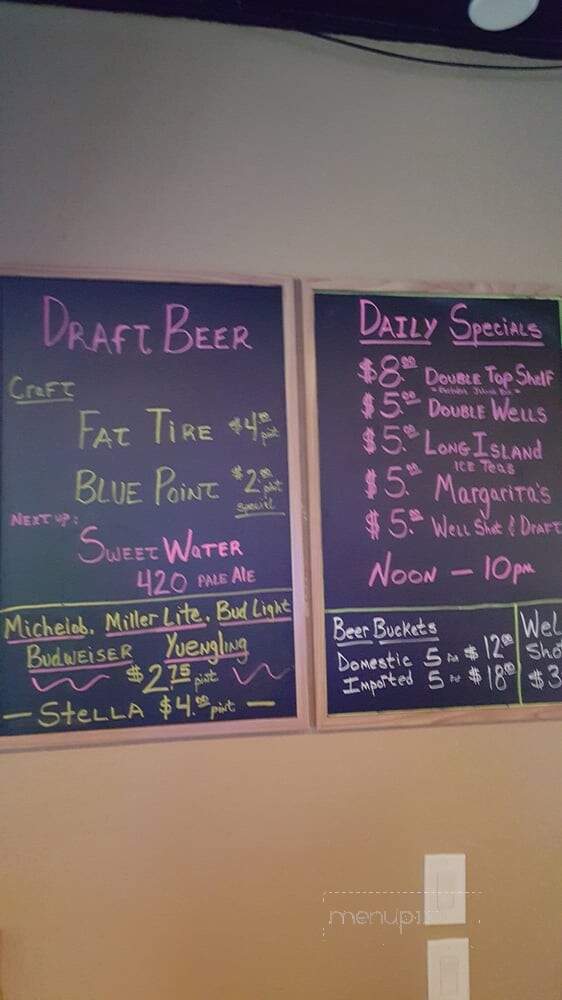 DRAFT BEER
Craft
FAT TIRE $4.00 pint
BLUE POINT $2.00 pint
special
NEXT UP:
SWEET WATER
420 PALE ALE
Michelob. Miller Lite. Bud Light
BUDWEISER Yuengling
$2.75 pint
- STELLA $4.00 pint -
DAILY SPECIALS
$8.00 DOUBLE TOP SHELF
$5.00 DOUBLE WELLS
$5.00 LONG ISLAND
ICE TEAS
$5.00 MARGARITA'S
$5.00 WELL SHOT & DRAFT
NOON - 10pm
Beer Buckets
Domestic 5 for $12.00
Imported 5 for $18.00
WEL
Sho
$3
menupix